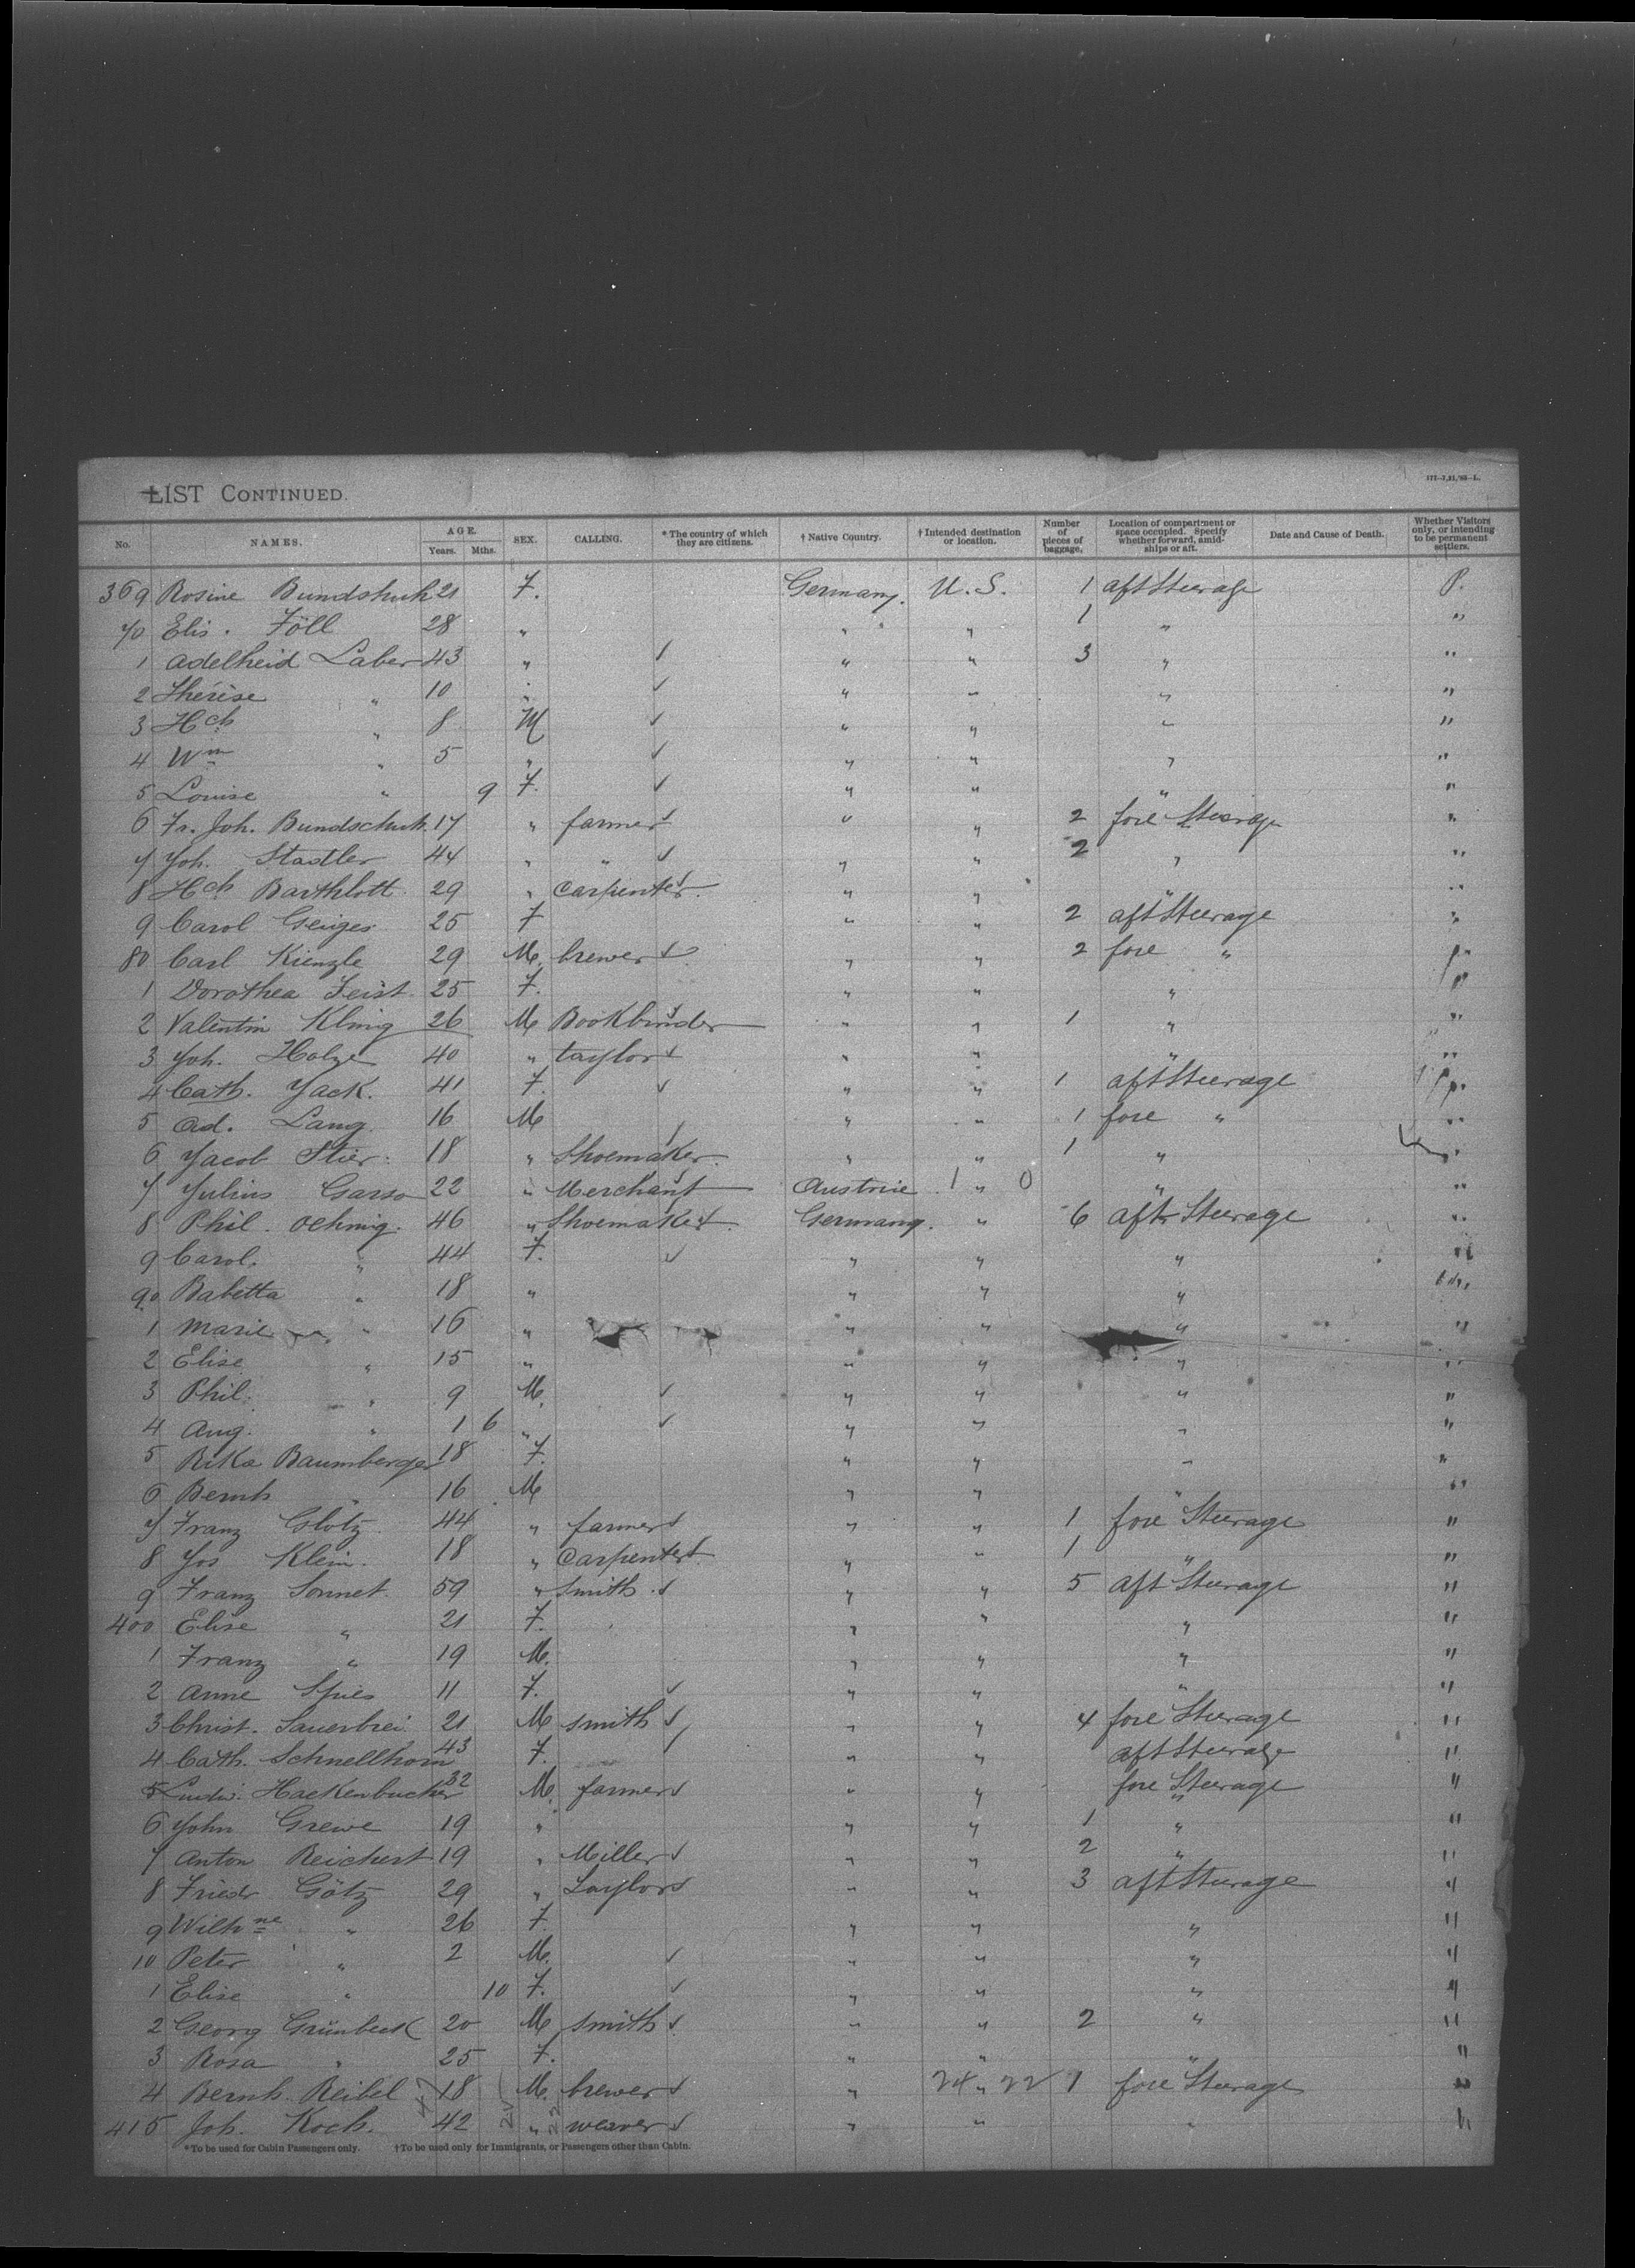 LIST CONTINUED.
111-7,11,'93-L.
No. NAMES. AGE. Years. Mths. SEX. CALLING. *The country of which they are citizens. †Native Country. †Intended destination or location. Number of pieces of baggage. Location of compartment or space occupied. Specify whether forward, amidships or aft. Date and Cause of Death. Whether Visitors only, or intending to be permanent settlers.
369 Rosine Bundshuh 21 F. Germany. U.S. 1 aft Steerage P.
70 Elis. Föll 28 " " " 1 " "
1 Adelheid Laber 43 " ✓ " " 3 " "
2 Therese " 10 " ✓ " " " "
3 Hch " 8 M ✓ " " " "
4 Wm " 5 " ✓ " " " "
5 Louise " 9 F. ✓ " " " "
6 Fr. Joh. Bundschuh 17 " farmer ✓ " " 2 fore Steerage "
7 Joh. Stadler 44 " " ✓ " " 2 " "
8 Hch Barthlott 29 " carpenter ✓ " " " "
9 Carol Geiges 25 F " " 2 aft Steerage "
80 Carl Kienzle 29 M. brewer ✓ " " 2 fore " p.
1 Dorothea Feist 25 F. " " " p
2 Valentin Kling 26 M Bookbinder ✓ " " 1 " "
3 Joh. Holze 40 " taylor ✓ " " " "
4 Cath. Jack. 41 F. ✓ " " 1 aft Steerage p.
5 Ad. Lang. 16 M " " 1 fore " "
6 Jacob Stier 18 " Shoemaker ✓ " " 1 " "
7 Julius Garso 22 " Merchant ✓ Austrie 1 " 0 " "
8 Phil. Oehmig. 46 " Shoemaker ✓ Germany. " 6 aft Steerage "
9 Carol. " 44 F. ✓ " " " "
90 Babetta " 18 " " " " "
1 Marie " 16 " " " " "
2 Elise " 15 " " " " "
3 Phil. " 9 M. ✓ " " " "
4 Aug. " 1 6 " ✓ " " " "
5 Rika Baumberger 18 F. " " " "
6 Bernh " 16 M " " " "
7 Franz Glötz 44 " farmer ✓ " " 1 fore Steerage "
8 Jos Klein. 18 " Carpenter ✓ " " 1 " "
9 Franz Sonnet. 59 " Smith ✓ " " 5 aft Steerage "
400 Elise " 21 F. " " " "
1 Franz " 19 M. " " " "
2 Anne Spies 11 F. ✓ " " " "
3 Christ. Sauerbrei 21 M smith ✓ " " 4 fore Steerage "
4 Cath. Schnellhorn 43 F. ✓ " " aft Steerage "
5 Ludw. Hackenbucher 32 M. farmer ✓ " " fore Steerage "
6 John Grewe 19 " " " 1 " "
7 Anton Reichert 19 " Miller ✓ " " 2 " "
8 Friedr Götz 29 " Taylor ✓ " " 3 aft Steerage "
9 Wilhne " 26 F. " " " "
10 Peter " 2 M. ✓ " " " "
1 Elise " 10 F. ✓ " " " "
2 Georg Grünbeck 20 M smith ✓ " " 2 " "
3 Rosa " 25 F. " " " "
4 Bernh. Reibel 18 M. brewer ✓ " 24 " 22 1 fore Steerage "
415 Joh. Koch. 42 " weaver ✓ " " " "
*To be used for Cabin Passengers only. †To be used only for Immigrants, or Passengers other than Cabin.